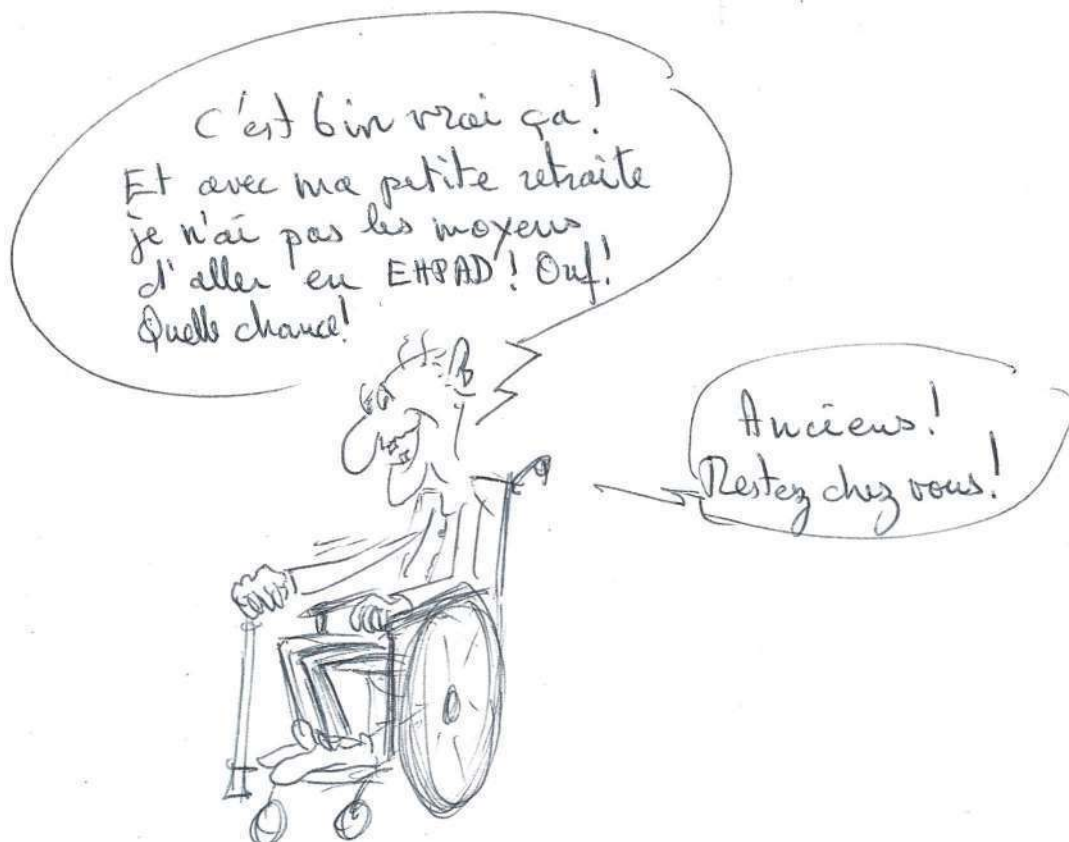 C'est bin vrai ça!
Et avec ma petite retraite
je n'ai pas les moyens
d'aller en EHPAD! Ouf!
Quelle chance!
Anciens!
Restez chez vous!